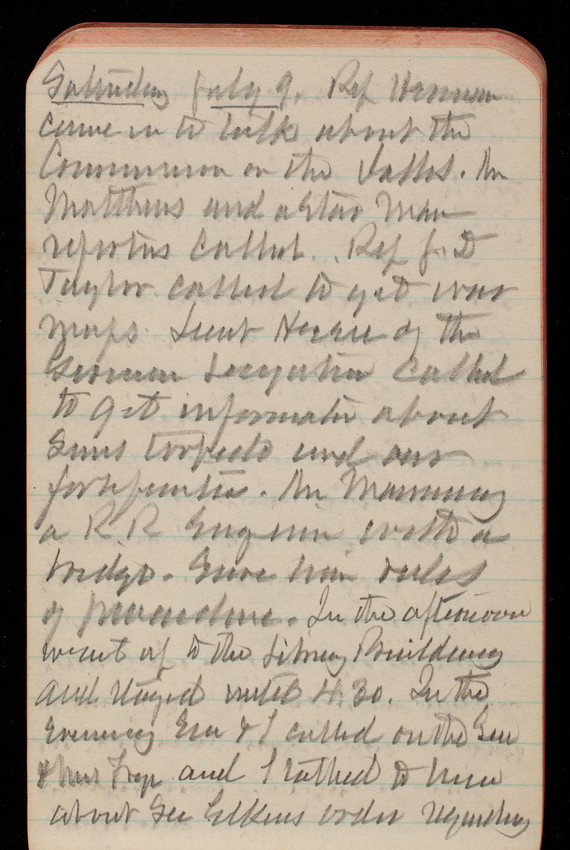 Saturday July 9. Rep Herman
came in to talk about the
Commission on the Dalles. Mr
Matthews and a Star Man
reporters called. Rep J. D
Taylor called to get war
maps. Lieut of the
German Legation called
to get information about
Sims torpedo and our
fortifications. Mr Manning
a R. R Engineer with a
bridge. Gave him rules
of procedure. In the afternoon
went up to the Library Building
and stayed until 4.30. In the
Evening Eva & I called on the Gen
& Mrs and I talked to him
about Sec Elkins order regarding